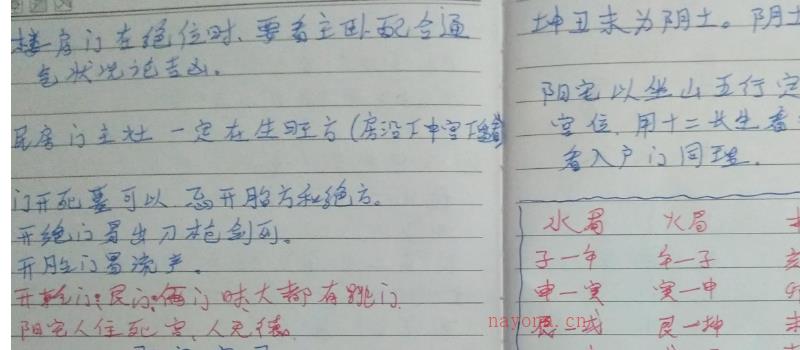 楼房门在绝位时、要看主卧配合通
气状况论吉凶。
民房门主灶一定在生旺方(房设
门开死墓可以 忌开胎方和绝方。
开绝门易出刀枪剑
开胎门易流产。
门 大都有跳门
阳宅人住死宫,人无德。
坤丑未为阴土。阴土
阳宅以坐山五行定
宫位、用十二长生看
看入户门同理.
水局 火局
子一午 午一子
申一寅 寅一申
一戌 艮一坤
nayona.cn